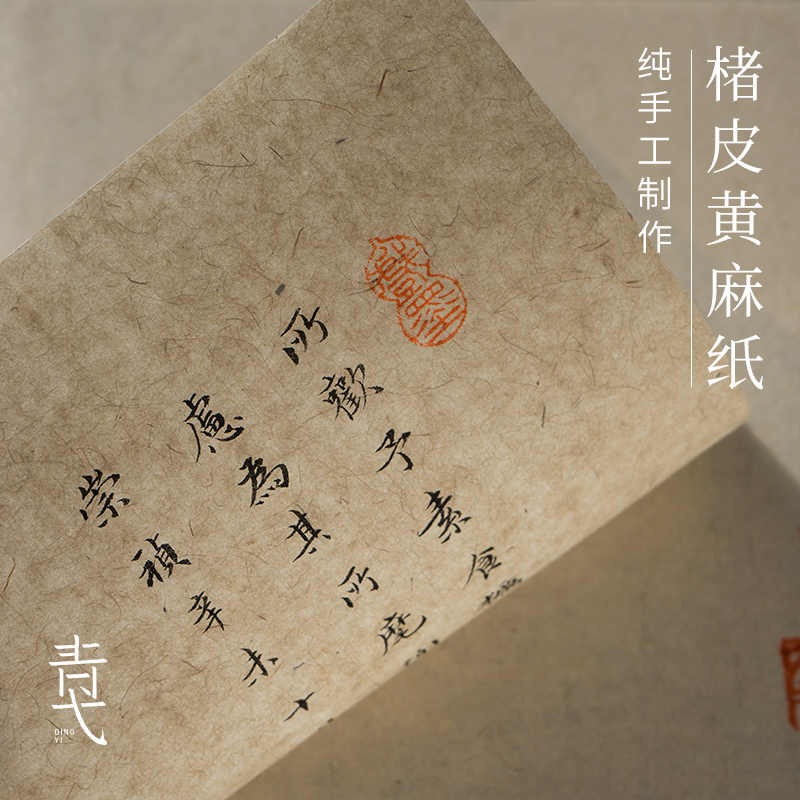 楮皮黄麻纸
纯手工制作
所歡予素食
慮為其所
崇禎辛未十
青弋
QING
YI